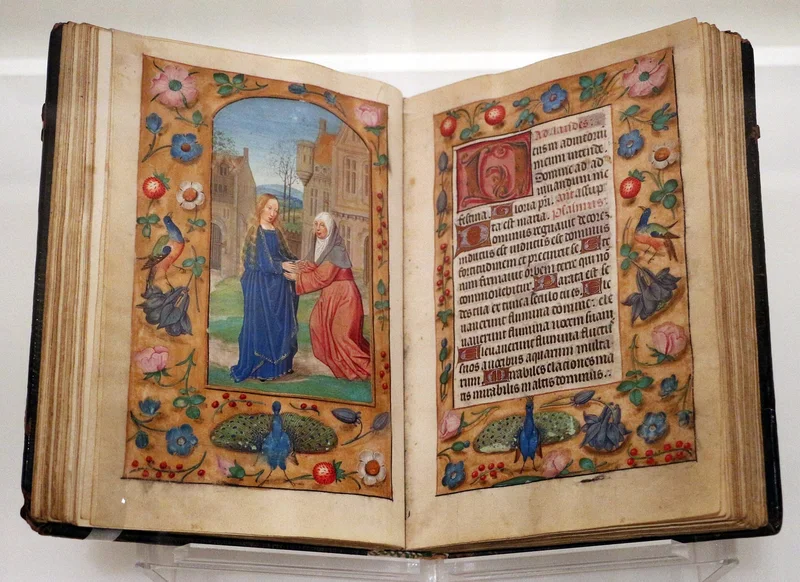 Ad laudes:
Deus in adiutoriū
meum intende.
Domine ad ad
iuuandum me
festina. Gloria pri. an. assup
ta est maria. Psalmus.
Dominus regnauit decorē
indutus est indutus est dominus
fortitudinem et precinxit se. Ete
nim firmauit orbem terre qui nō
commouebitur. Parata est se
des tua ex tunc a seculo tu es. Ele
uauerunt flumina domine: ele
uauerunt flumina uocem suam
Eleuauerunt flumina fluct
suos a uocibus aquarum multa
rum. Mirabiles elaciones ma
ris mirabilis in altis dominus.